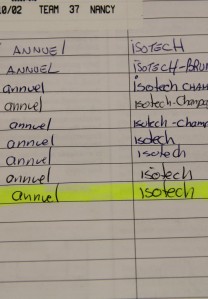 10/02 TEAM 37 NANCY
ANNUEL ISOTECH
ANNUEL ISOTECH-BRUN
annuel Isotech CHAM
annuel Isotech-Champa
annuel Isotech-Champ
annuel Isotech
annuel Isotech
annuel Isotech
annuel Isotech